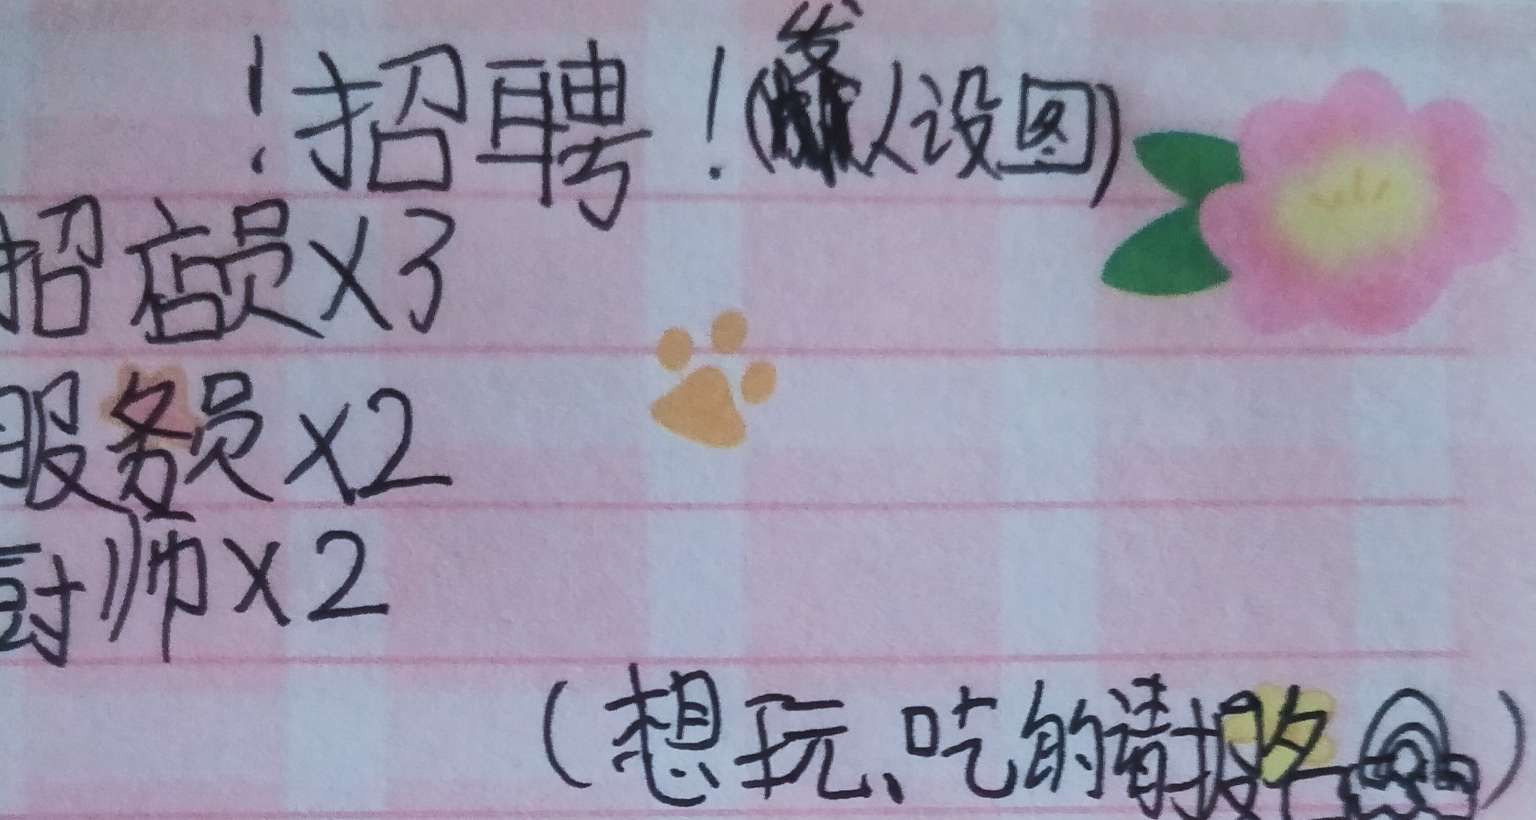 ！招聘！(发人设图)
招店员X3
服务员X2
厨师X2
(想玩、吃的请报名)